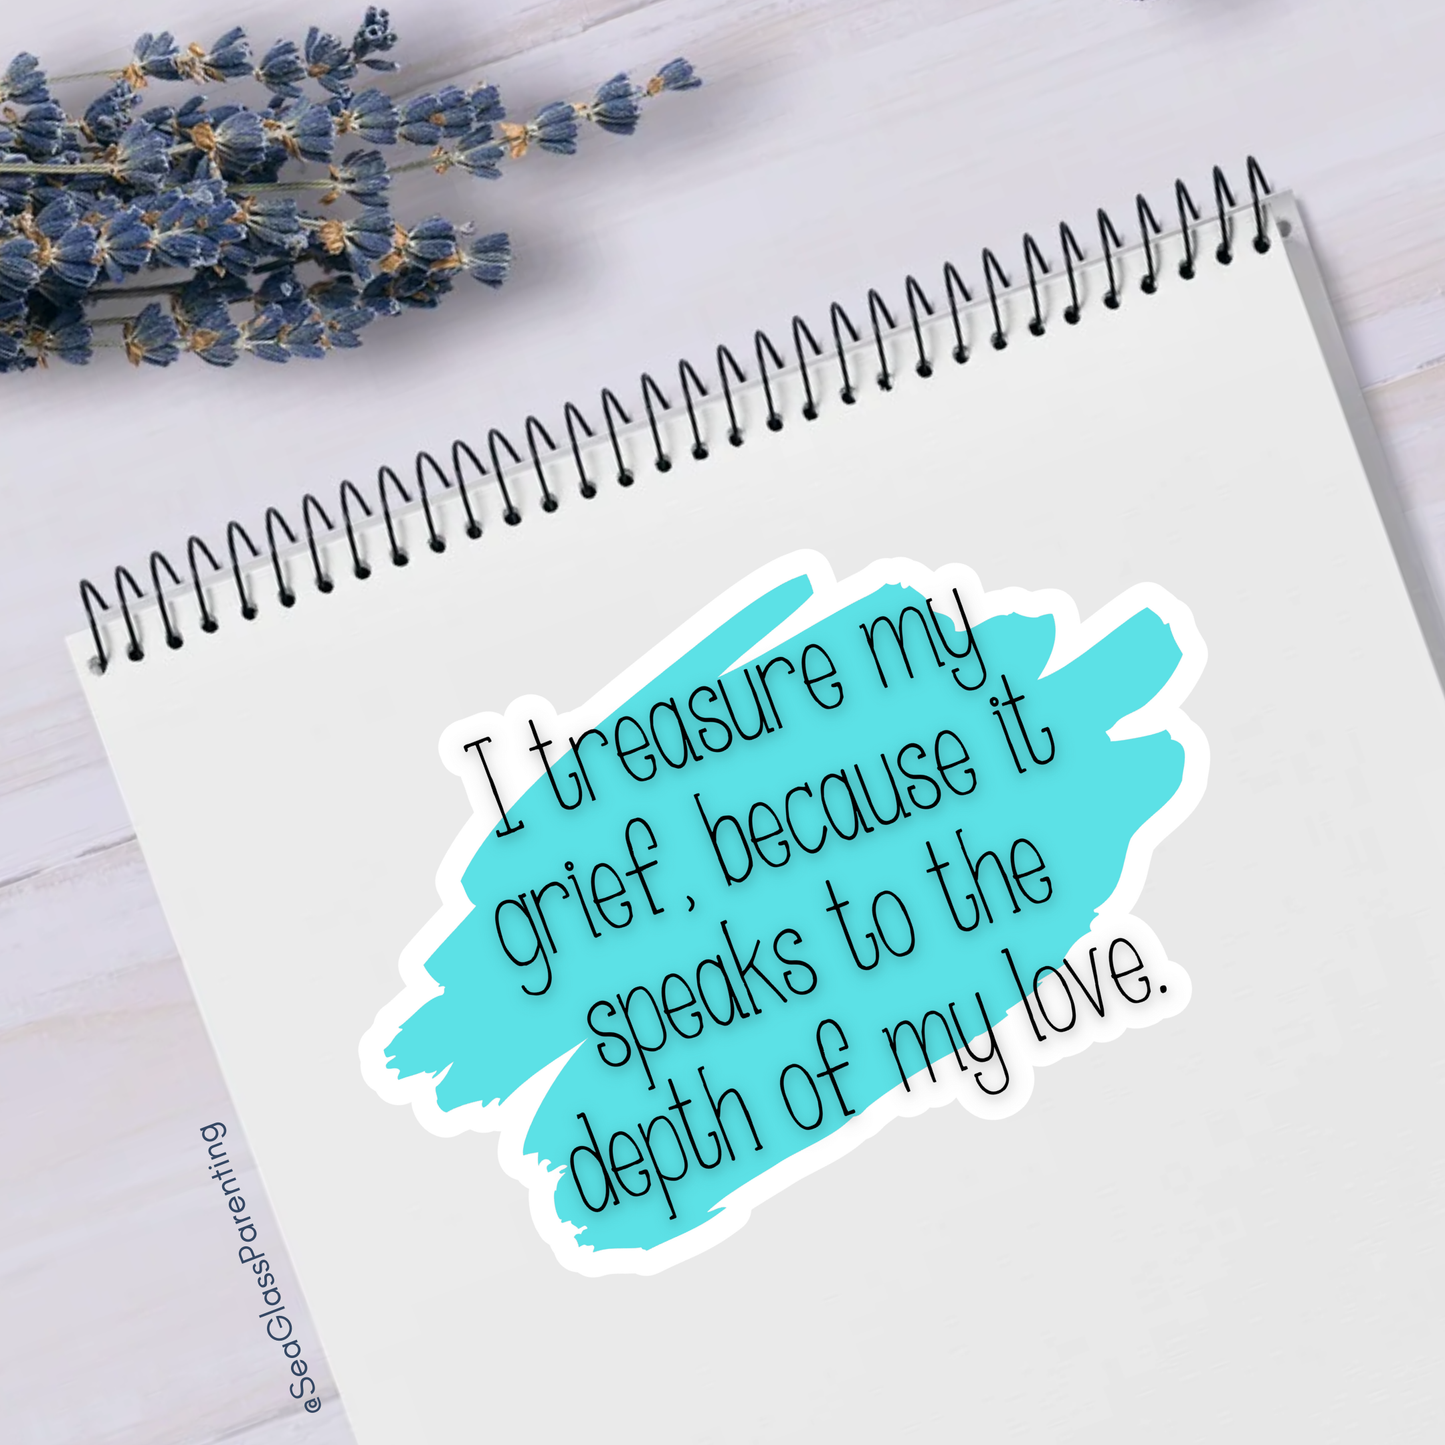 I treasure my
grief, because it
speaks to the
depth of my love.
@SeaGlassParenting